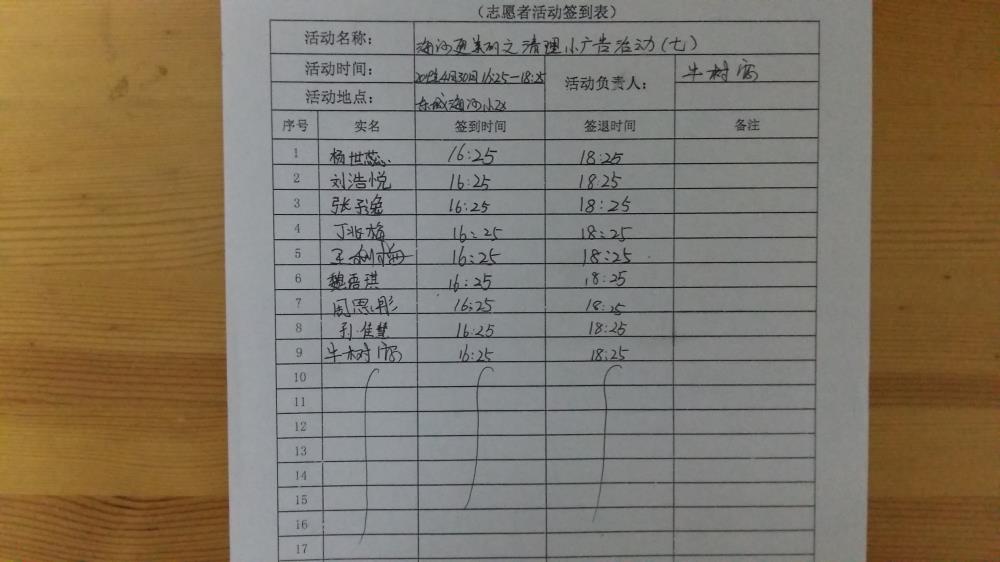 (志愿者活动签到表)
活动名称: 清理小广告活动(七)
活动时间: 4月30日16:25—18:25 活动负责人: 牛树
活动地点:
序号 实名 签到时间 签退时间 备注
1 杨世蕊 16:25 18:25
2 刘浩悦 16:25 18:25
3 张子逸 16:25 18:25
4 丁兆梅 16:25 18:25
5 王 16:25 18:25
6 魏语琪 16:25 18:25
7 周思彤 16:25 18:25
8 孙佳慧 16:25 18:25
9 牛树 16:25 18:25
10
11
12
13
14
15
16
17